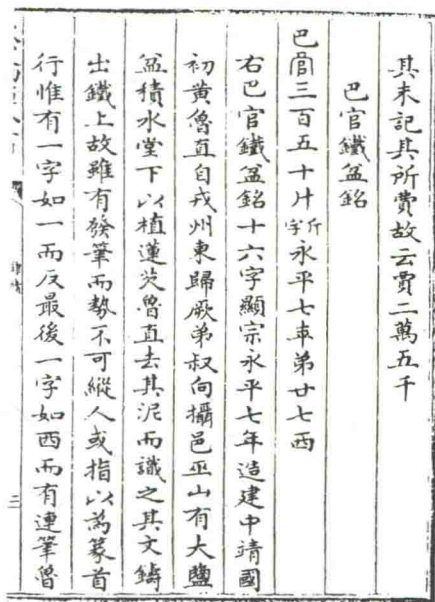 其末記其所費故云賈二萬五千
巴官鐵盆銘
巴官三百五十斤斤字永平七年弟廿七西
右巴官鐵盆銘十六字顯宗永平七年造建中靖國
初黃魯直自戎州東歸厥弟叔向攝邑巫山有大鹽
盆積水堂下以植蓮芡魯直去其泥而識之其文鑄
出鐵上故雖有發筆而勢不可縱人或指以為篆首
行惟有一字如一而反最後一字如西而有連筆魯